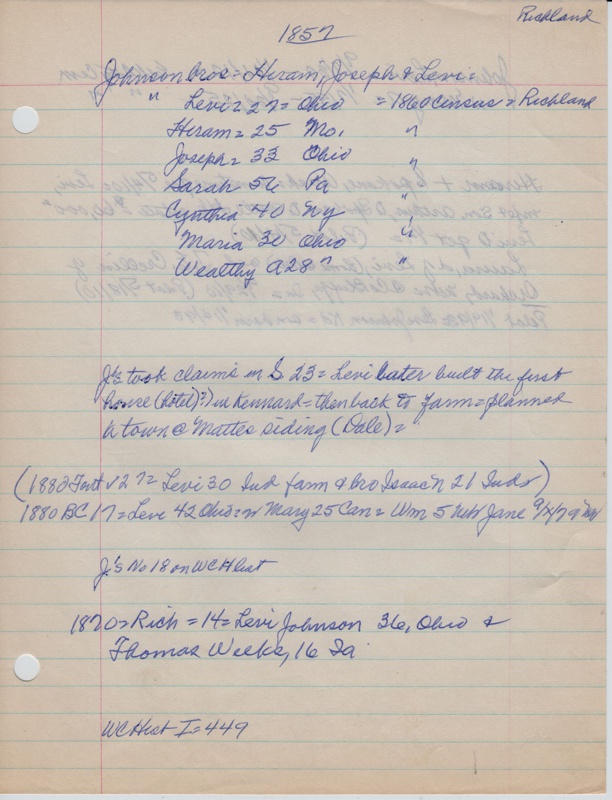 Richland
1857
Johnson bros = Hiram, Joseph & Levi =
" Levi = 27 = Ohio = 1860 census = Richland
Hiram = 25 Mo. "
Joseph = 33 Ohio "
Sarah 56 Pa "
Cynthia 40 Ny "
Maria 30 Ohio "
Wealthy A 28 "
J's took claims in S 23 = Levi later built the first
house (hotel)?) in Kennard = then back to farm = planned
a town @ Mattes siding (Dale) =
(1880 27 = Levi 30 Ind farm & bro Isaac 21 Ind)
1880 BC 17 = Levi 42 Ohio = w Mary 25 Can = Wm 5 Neb Jane
J's No 18 on WCHist
1870 = Rich = 14 = Levi Johnson 36, Ohio &
Thomas Weeks, 16 Ia
WCHist I = 449